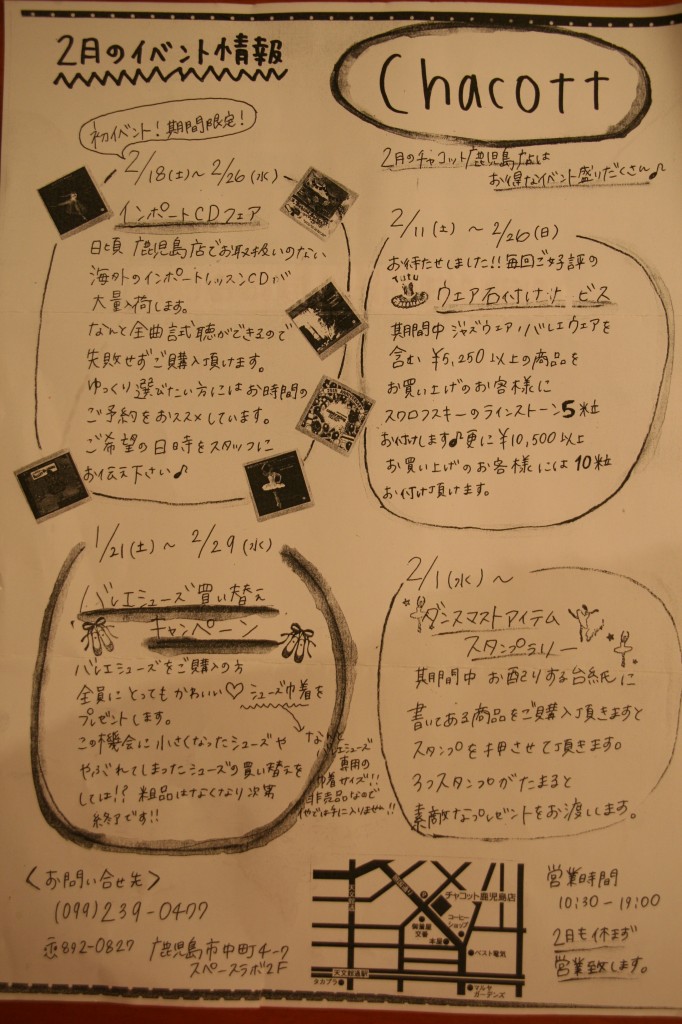 2月のイベント情報
Chacott
2月のチャコット鹿児島店は
お得なイベント盛りだくさん♪
初イベント!期間限定!
2/18(土)~2/26(水)
インポートCDフェア
日頃 鹿児島店でお取扱いのない
海外のインポートレッスンCDが
大量入荷します。
なんと全曲試聴ができるので
失敗せずご購入頂けます。
ゆっくり選びたい方にはお時間の
ご予約をおススメしています。
ご希望の日時をスタッフに
お伝え下さい♪
2/11(土) ~ 2/26(日)
お待たせしました!!毎回ご好評の
ウエア石付けサービス
期間中 ジャズウェア・バレエウェアを
含む ¥5,250以上の商品を
お買い上げのお客様に
スワロフスキーのラインストーン5粒
お付けします♪更に¥10,500以上
お買い上げのお客様には10粒
お付け頂けます。
1/21(土)~ 2/29(水)
バレエシューズ買い替え
キャンペーン
バレエシューズをご購入の方
全員にとってもかわいい♡シューズ巾着を
プレゼントします。
この機会に小さくなったシューズや
やぶれてしまったシューズの買い替えを
しては!?粗品はなくなり次第
終了です!!
なんと
バレエシューズ
専用の
巾着サイズ!!
非売品なので
他では手に入りません!!
2/1(水)~
ダンスマストアイテム
スタンプラリー
期間中 お配りする台紙に
書いてある商品をご購入頂きますと
スタンプを押させて頂きます。
3つスタンプがたまると
素敵なプレゼントをお渡しします。
<お問い合せ先>
(099)239-0477
〒892-0827 鹿児島市中町4-7
スペースラボ2F
チャコット鹿児島店
コーヒー
ショップ
交番
本屋
ベスト電気
天文館通駅
タカプラ
マルヤ
ガーデンズ
営業時間
10:30-19:00
2月も休まず
営業致します。